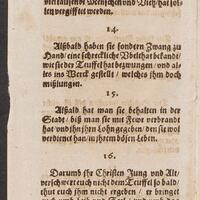 viertausendt Menschen und Vieh/ hat sol-
len vergifftet werden.
14.
Alßbald haben sie sondern Zwang zu
Hand/ eine schreckliche Vbelthat bekandt/
wie sie der Teuffel hat bezwungen/ und al-
les ins Werck gestelt/ welches jhm doch
mißlungen.
15.
Alßald hat man sie behalten in der
Stadt/ biß man sie mit Fewr verbrandt
hat/ vnd jhn jhrn Lohn gegeben/ den sie wol
verdienet han/ in jhrem bösen Leben.
16.
Darumb jhr Christen Jung und Alt/
verschweret euch nicht dem Teuffel so bald/
thut euch jhm nicht ergeben/ er bringet